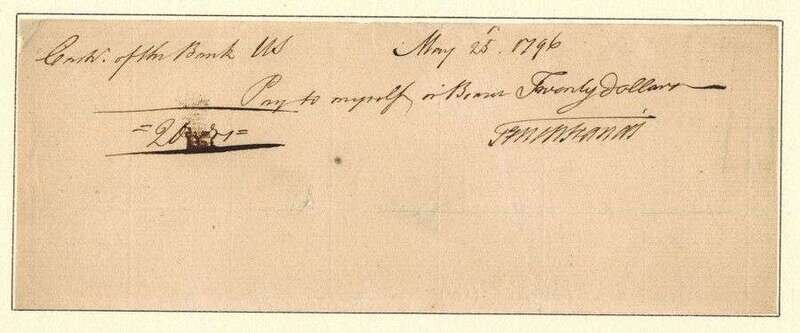 Cash.r of the Bank US May 25. 1796
Pay to myself or Bearer Twenty Dollars
=20